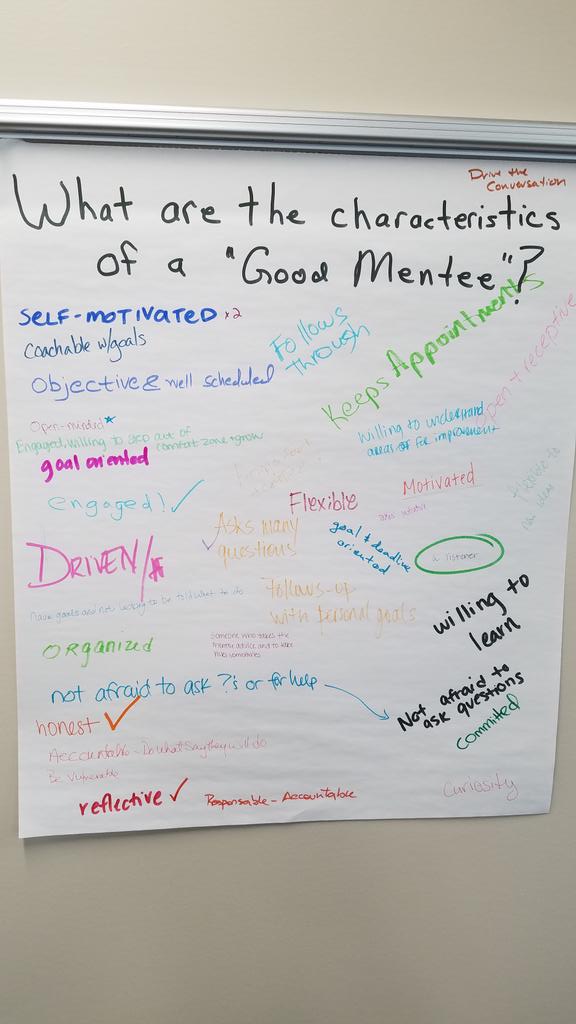 Drive the
Conversation
What are the characteristics
of a "Good Mentee"?
SELF-MOTIVATED x2
Coachable w/goals
Follows
through
Keeps Appointments
Objective & well scheduled
open + receptive
Open-minded*
Engaged, willing to step out of
comfort zone + grow
willing to understand
areas of for improvement
goal oriented
Motivated
engaged! ✓
Flexible
takes initiative
Asks many
✓ questions
goal & deadline
oriented
a listener
DRIVEN/*
have goals and not looking to be told what to do
Follows-up
with personal goals
willing to
learn
ORganized
Someone who takes the
mentor advice and to take
not afraid to ask ?'s or for help
Not afraid to
ask questions
committed
honest ✓
Accountable - Do what say they will do
Be Vulnerable
reflective ✓
Responsable - Accountable
Curiosity